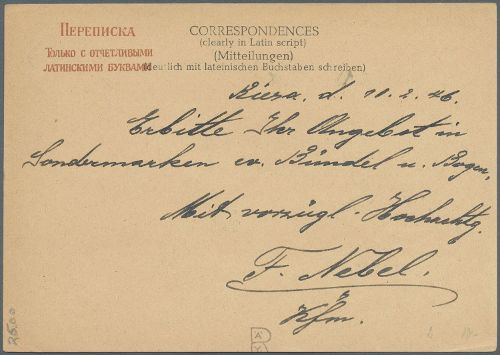 Переписка
Только с отчетливыми
латинскими буквами
CORRESPONDENCES
(clearly in Latin script)
(Mitteilungen)
(deutlich mit lateinischen Buchstaben schreiben)
Riesa, d. 11.2.46.
Erbitte Ihr Angebot in
Sondermarken ev. Bündel u. Bogen,
Mit vorzügl. Hochachtg.
F. Nebel.
Kfm.
25.00